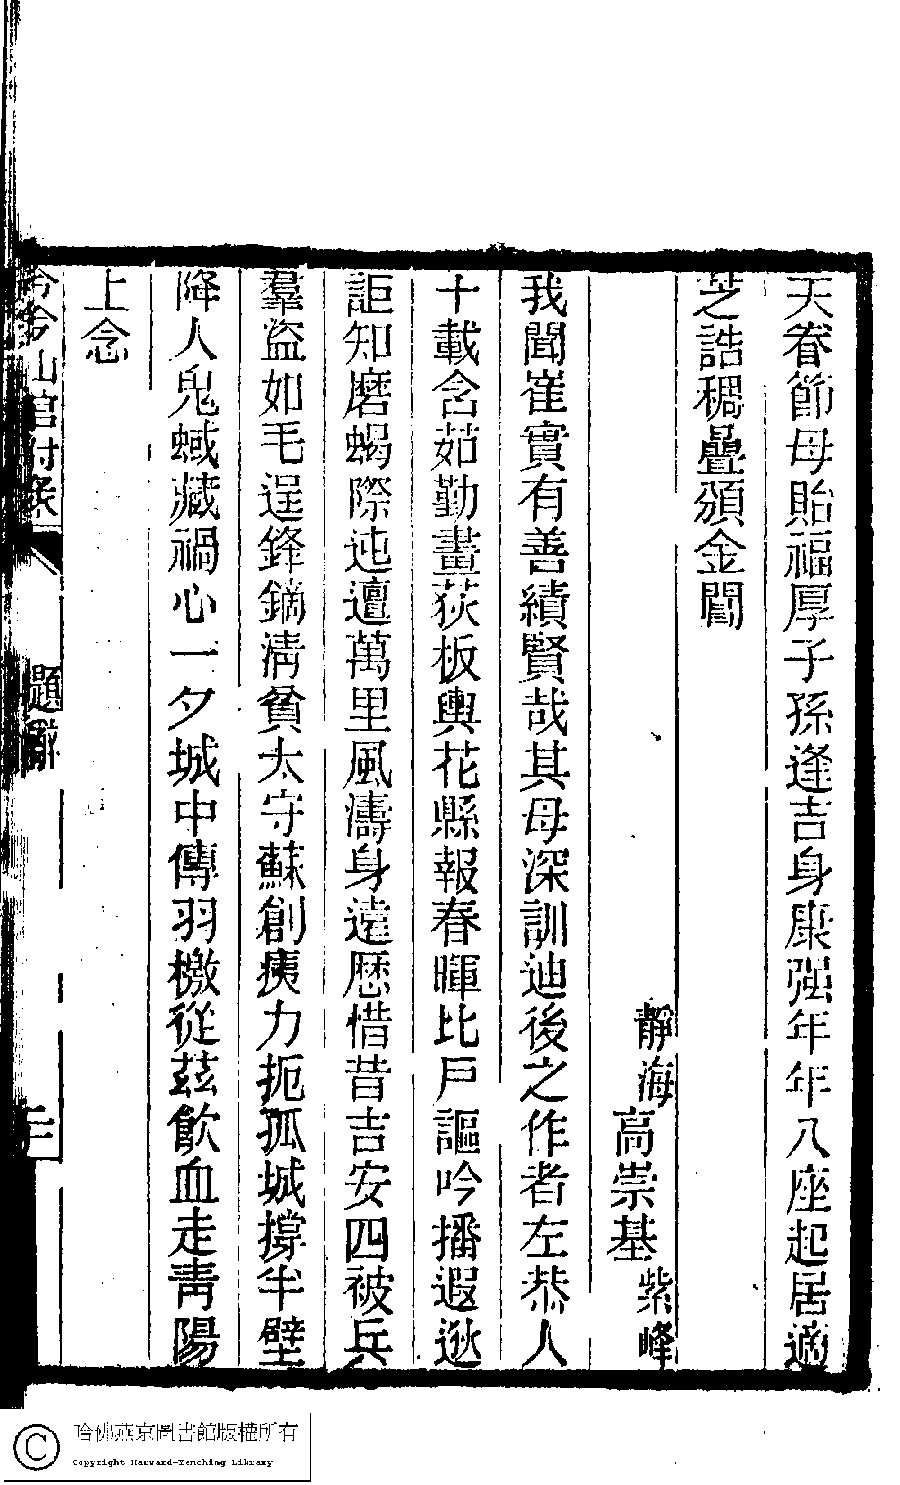 天眷節母貽福厚子孫逢吉身康强年年八座起居適
芝誥稠疊頒金閶
靜海高崇基紫峰
我聞崔實有善績賢哉其母深訓迪後之作者左恭人
十載含茹勤畫荻板輿花縣報春暉比戶謳吟播遐逖
詎知磨蝎際迍邅萬里風濤身遠歷惜昔吉安四被兵
羣盜如毛逞鋒鏑淸貧太守蘇創痍力扼孤城撐半壁
降人鬼蜮藏禍心一夕城中傳羽檄從茲飮血走靑陽
上念
吟山館附
題辭
哈佛燕京圖書館版權所有
Copyright Harvard-Yenching Library